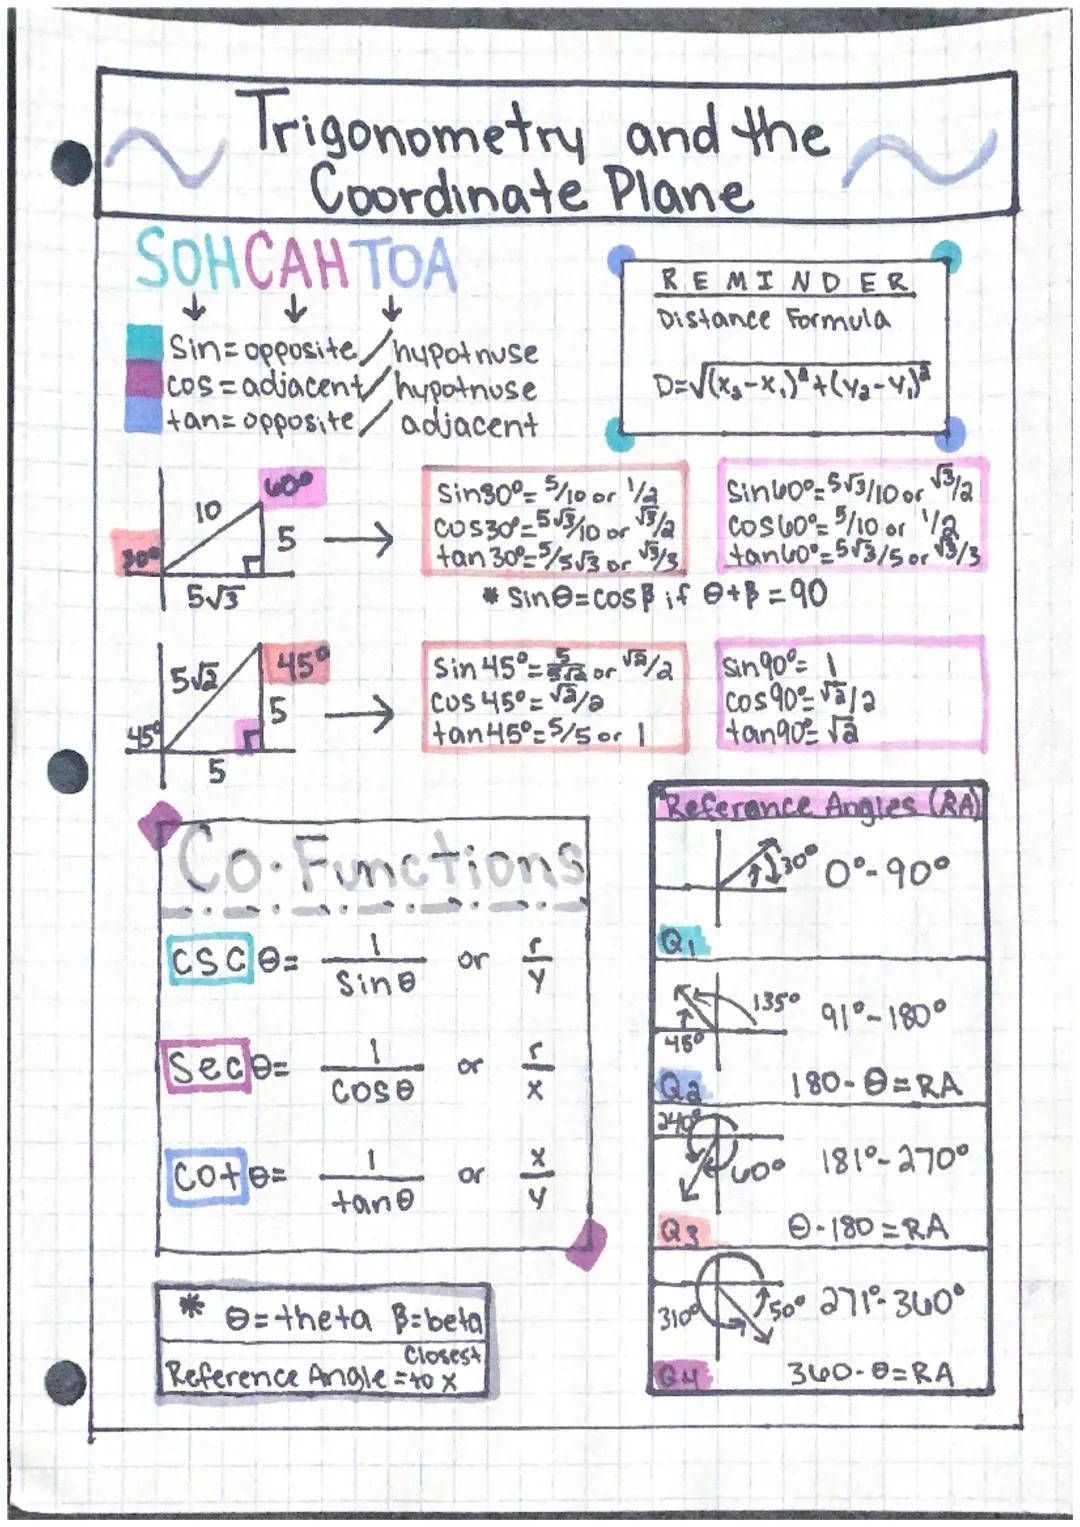 Trigonometry and the
Coordinate Plane
SOHCAHTOA
Sin=opposite/hypotnuse
cos=adjacent/hypotnuse
tan=opposite/adjacent
REMINDER
Distance Formula
D=√(x₂-x₁)²+(y₂-y₁)²
10
60°
5
30°
5√3
Sin30°=5/10 or 1/2
cos30°=5√3/10 or √3/2
tan 30°=5/5√3 or √3/3
Sin60°=5√3/10 or √3/2
cos60°=5/10 or 1/2
tan60°=5√3/5 or √3/3
* Sinθ=cosβ if θ+β=90
5√2
45°
5
45°
5
Sin 45°=5/5√2 or √2/2
cos 45°=√2/2
tan45°=5/5 or 1
Sin90°=1
cos90°=√2/2
tan90°=√2
Co-Functions
cscθ= 1/sinθ or r/y
Secθ= 1/cosθ or r/x
cotθ= 1/tanθ or x/y
* θ=theta β=beta
Reference Angle = closest to x
Reference Angles (RA)
30° 0°-90°
Q1
135° 91°-180°
45°
Q2 180-θ=RA
240°
60° 181°-270°
Q3 θ-180=RA
310° 50° 271°-360°
Q4 360-θ=RA